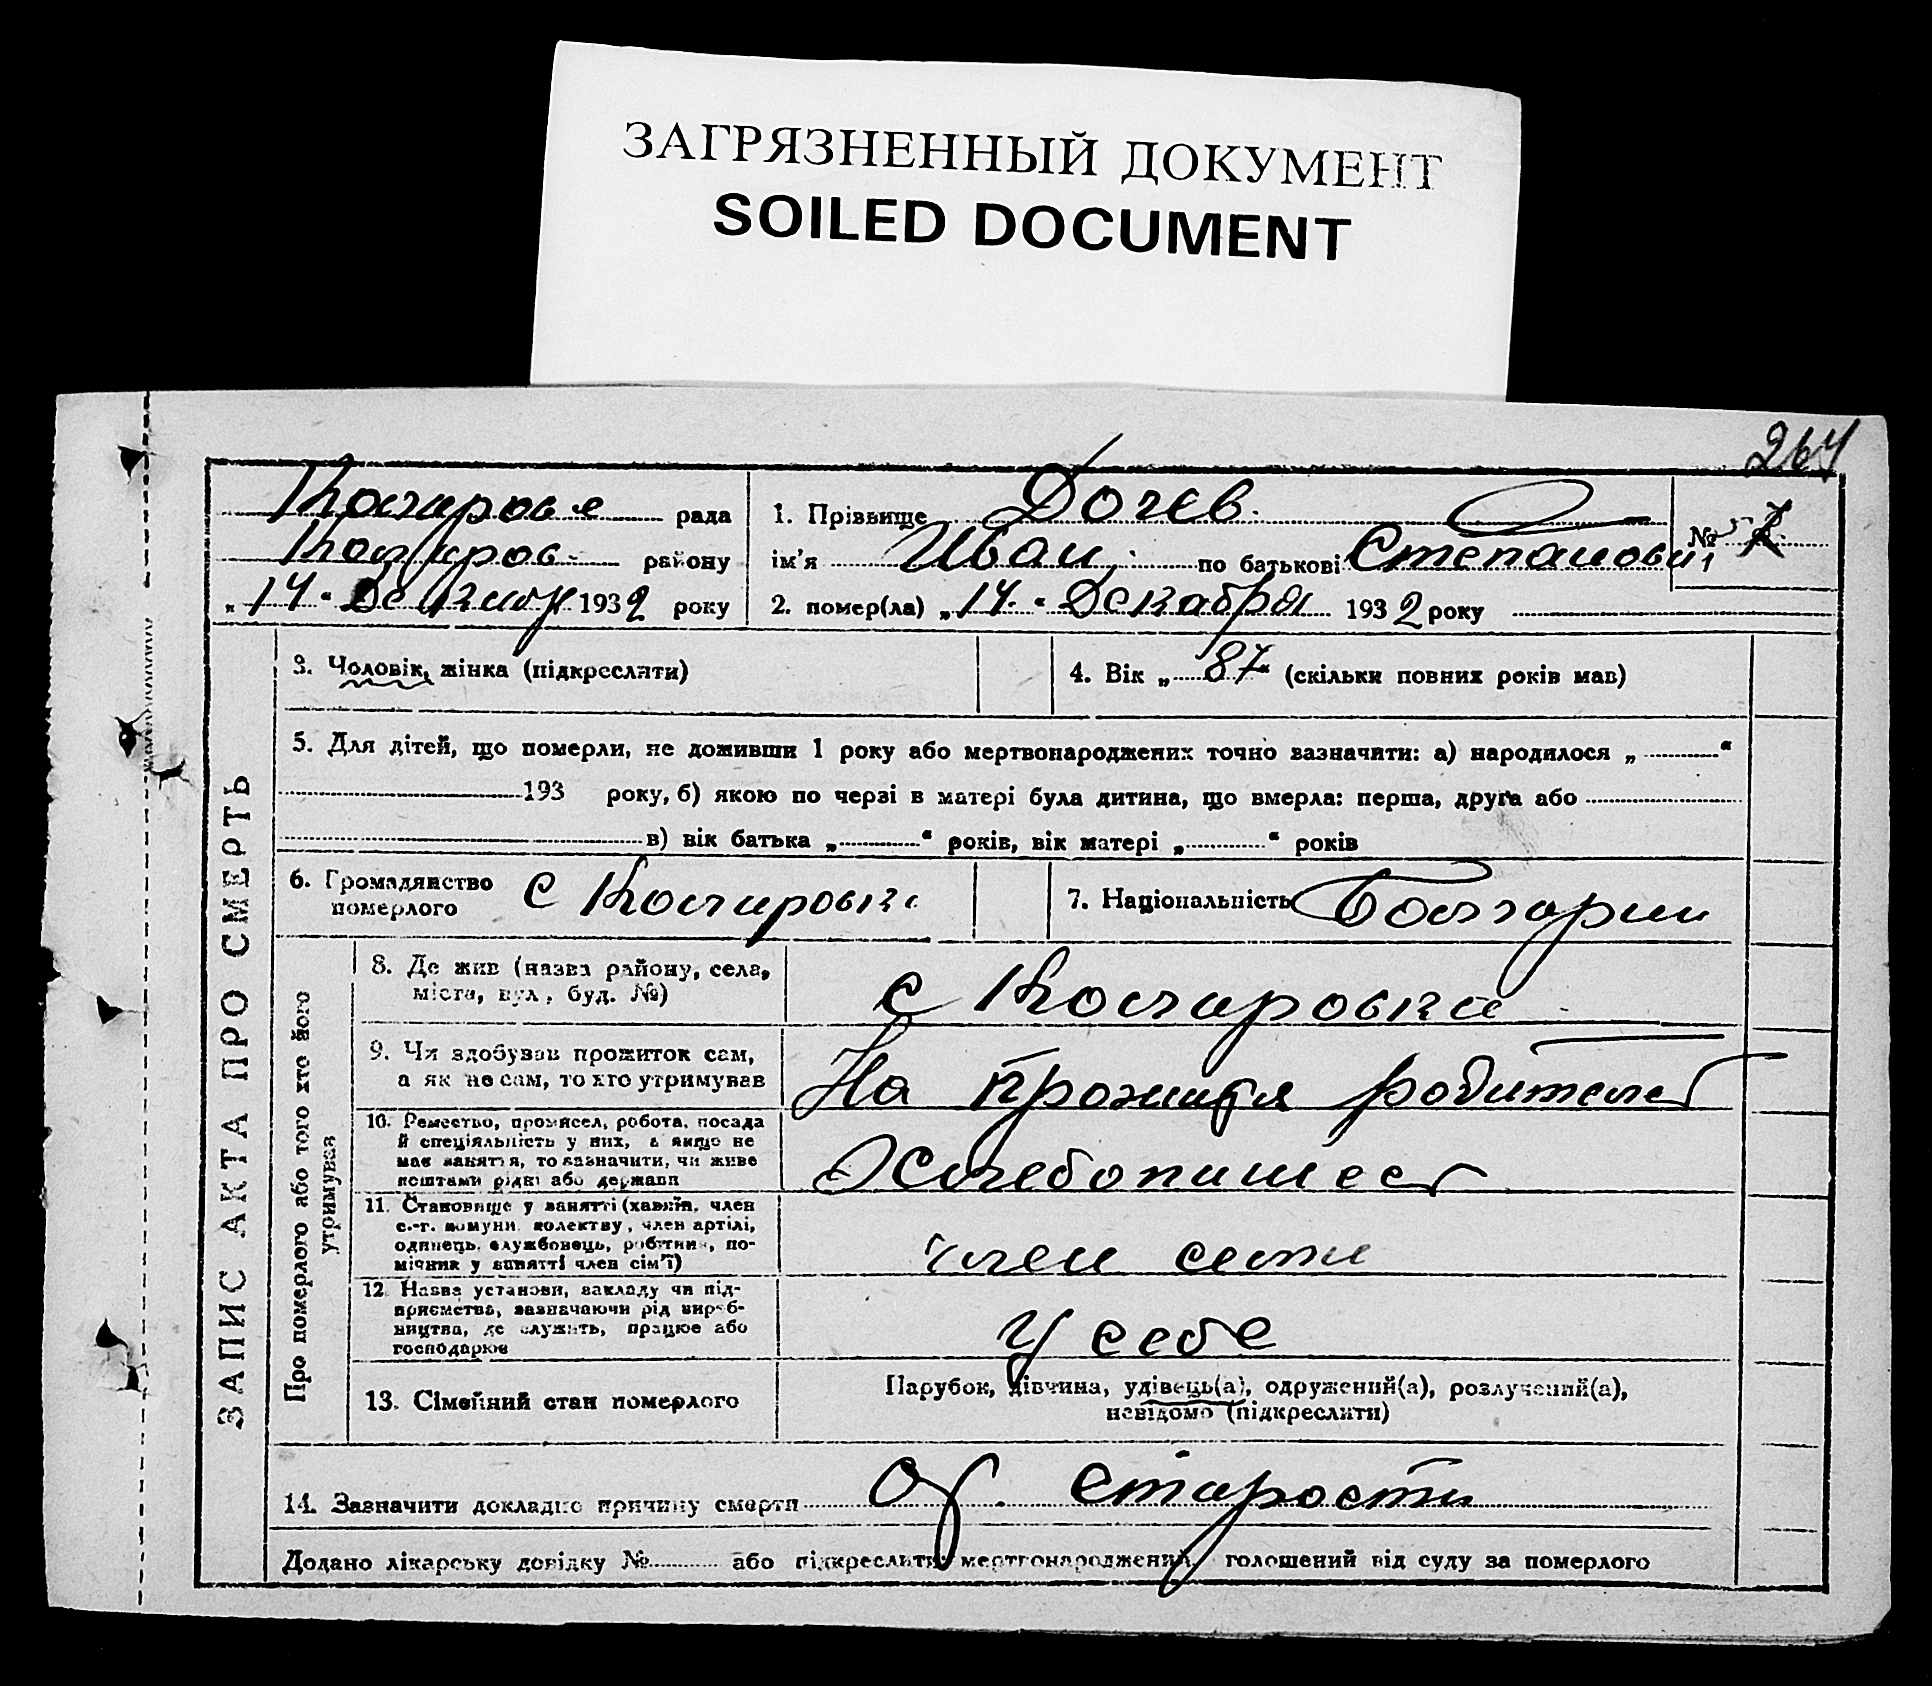 ЗАГРЯЗНЕННЫЙ ДОКУМЕНТ
SOILED DOCUMENT
264
рада
району
„14“ 1932 року
1. Прізвище Дочев
ім'я Иван по батькові Степанович
№
2. помер(ла) „14“ Декабря 1932 року
ЗАПИС АКТА ПРО СМЕРТЬ
3. Чоловік, жінка (підкреслити)
4. Вік „87“ (скільки повних років мав)
5. Для дітей, що померли, не доживши 1 року або мертвонароджених точно зазначити: а) народилося „ “
193 року, б) якою по черзі в матері була дитина, що вмерла: перша, друга або
в) вік батька „ “ років, вік матері „ “ років
6. Громадянство
померлого
7. Національність
Про померлого або того хто його
утримував
8. Де жив (назва району, села,
міста, вул., буд. №)
9. Чи здобував прожиток сам,
а як не сам, то хто утримував
На родителей
10. Ремество, промисел, робота, посада
й спеціяльність у них, а якщо не
має заняття, то зазначити, чи живе
коштами рідні або держави
11. Становище у занятті (хазяїн, член
с.-г. комуни, колективу, член артілі,
одинець, службовець, робітник, по-
мічник у занятті член сім'ї)
член семи
12. Назва установи, закладу чи під-
приємства, зазначаючи рід вироб-
ництва, де служить, працює або
господарює
у себе
13. Сімейний стан померлого
Парубок, дівчина, удівець(а), одружений(а), розлучений(а),
невідомо (підкреслити)
14. Зазначити докладно причину смерти От старости
Додано лікарську довідку № або підкреслити: мертвонароджений, голошений від суду за померлого